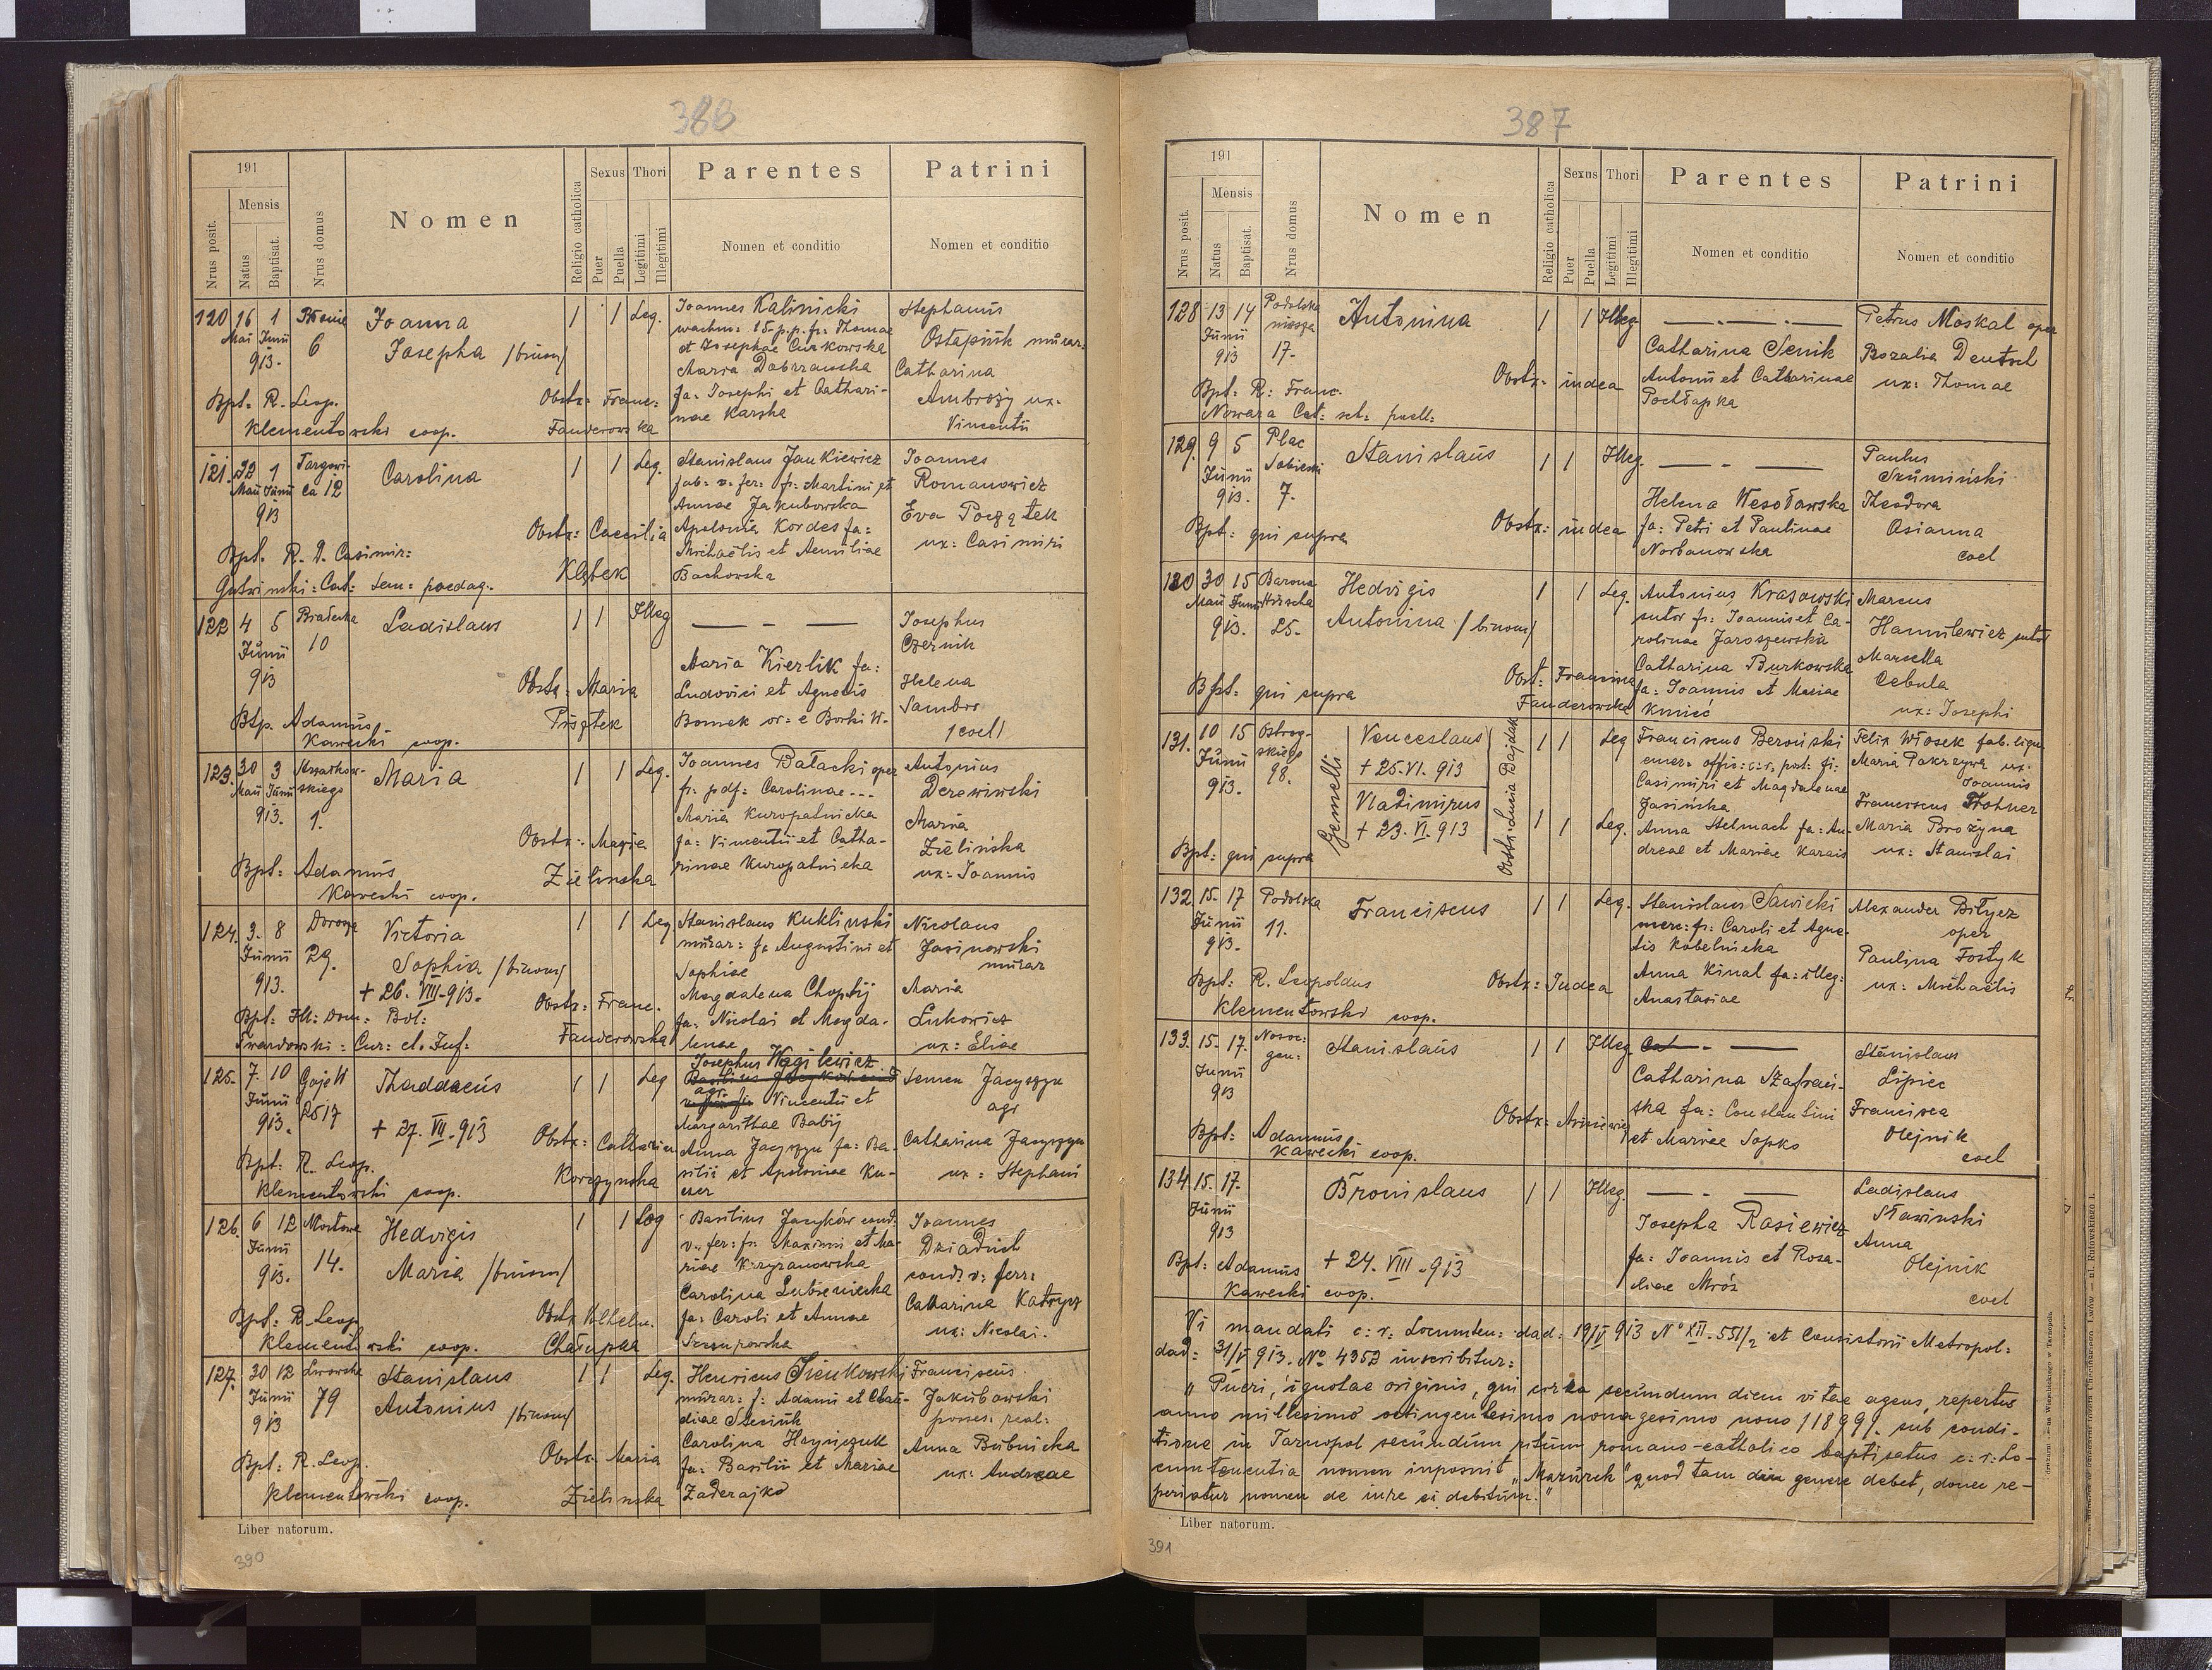 388
191
Mensis
Nrus posit.
Natus
Baptisat.
Nrus domus
Nomen
Religio catholica
Sexus
Puer
Puella
Thori
Legitimi
Illegitimi
Parentes
Nomen et conditio
Patrini
Nomen et conditio
120 16 1
Maii Junii
913.
6
Joanna
Josepha /binom/
1 1 Leg.
Joannes Kalinicki
wachm: 15 p.p. fi: Thomae
et Josephae Curkowska
Maria Dobrzanska
fa: Josephi et Cathari-
nae Karska
Stephanus
Ostapiuk murar:
Catharina
Ambroży ux.
Vincentii
Bpt: R. Leop.
Klementowski coop.
Obstx: Franc:
Fanderowska
121. 22 1
Maii Junii
913
Targowi-
ca 12
Carolina
1 1 Leg.
Stanislaus Jankiewicz
fab: v. fer: fi: Martini et
Annae Jakubowska
Apolonia Kordes fa:
Michaëlis et Aemiliae
Bachowska
Joannes
Romanowicz
Eva Początek
ux: Casimiri
Obstx: Caecilia
Klębek
Bpt. R. D. Casimir:
Gutwinski: Cat: sem: paedag.
122 4 5
Junii
913
10
Ladislaus
1 1 Illeg
Maria Kierlik fa:
Ludovici et Agnetis
Bomek or: e Borki W.
Josephus
Czernik
Helena
Sambro
/coel/
Obstx: Maria
Btp. Adamus
Kawecki coop.
123. 30 3
Maii Junii
913. 1.
Maria
1 1 Leg.
Joannes Bałacki oper
fi: pdf: Carolinae ---
Maria Kuropatnicka
fa: Vincentii et Catha-
rinae Kuropatnicka
Antonius
Derewiwski
Maria
Zielińska
ux: Joannis
Obstx: Maria
Zielinska
Bpt: Adamus
Kawecki coop.
124. 3. 8
Junii
913.
29.
Victoria
Sophia /binom/
+ 26. VIII-913.
1 1 Leg
Stanislaus Kuklinski
murar: fi Augustini et
Sophiae
Magdalena Choptij
fa: Nicolai et Magda-
lenae
Nicolaus
Jasinowski
murar
Maria
Lukowicz
ux: Eliae
Obstx: Franc.
Fanderowska
Bpt: Ill: Dom: Bol:
Twardowski: Cur: et. Inf:
125. 7. 10
Junii
913.
Gaje W
2517
Thaddaeus
+ 27. VII-913
1 1 Leg
Josephus Węgilewicz
agr.
Vincentii et
Margarithae Babij
Anna Jacyszyn fa: Ba-
silii et Apoloniae Ku-
Semen Jacyszyn
agr
Catharina Jacyszyn
ux: Stephani
Obstx: Catharina
Korzynska
Bpt: R. Leop.
Klementowski coop.
126. 6 12
Junii
913.
Mostowa
14.
Hedvigis
Maria /binom/
1 1 Leg
Basilius Jacyków cond.
v. fer: fi: Maximi et Ma-
riae Krzyzanowska
Carolina Lubieniecka
fa: Caroli et Annae
Joannes
Dziaduch
cond: v: ferr:
Catharina Katrycz
ux: Nicolai.
Obstx Vilhelm.
Chałupka
Bpt: R. Leop
Klementowski coop.
127. 30 12
Junii
913
Lwowska
79
Stanislaus
Antonius /binom/
1 1 Leg.
Henricus Sienkowski
murar: f: Adami et Clau-
diae Steciuk
Carolina Hryńczuk
fa: Basilii et Mariae
Zaderajko
Franciscus
Jakubowski
posses: real:
Anna Bubnicka
ux: Andreae
Obstx: Maria
Zielinska
Bpt: R. Leop.
Klementowski coop.
Liber natorum.
390
387
191
Mensis
Nrus posit.
Natus
Baptisat.
Nrus domus
Nomen
Religio catholica
Sexus
Puer
Puella
Thori
Legitimi
Illegitimi
Parentes
Nomen et conditio
Patrini
Nomen et conditio
128 13 14
Junii
913
Podolska
niższa
17.
Antonina
1 1 Illeg.
Catharina Senik
Antonii et Catharinae
Pochłapka
Petrus Moskal oper
Rozalia Deutsch
ux: Thomae
Obstx: iudea
Bpt: R: Franc.
Nowara Cat: sch: puell:
129. 9 5
Junii
913.
Plac
Sobieski
7.
Stanislaus
1 1 Illeg.
Helena Wesołowska
fa: Petri et Paulinae
Norbanowska
Paulus
Szumiński
Theodora
Osianna
coel
Obstx: iudea
Bpt: qui supra
130 30 15
Maii Junii
913.
Barona
Hirscha
25.
Hedvigis
Antonina /binom/
1 1 Leg.
Antonius Krasowski
sutor fi: Joannis et Ca-
rolinae Jaroszewska
Catharina Burkowska
fa: Joannis et Mariae
Kmieć
Marcus
Hanulewicz sutor
Marcella
Cebula
ux: Josephi
Obst: Francina
Fanderowska
Bpt: qui supra
131. 10 15
Junii
913.
Ostrog-
skiego
98.
Gemelli
Venceslaus
+ 25.VI. 913
Vladimirus
+ 23. VI. 913
Obstx: Lucia Bajdak
1 1 Leg
1 1 Leg.
Franciscus Beroiński
emer: offic: c.r. post: fi:
Casimiri et Magdalenae
Jasińska
Anna Stelmach fa: An-
dreae et Mariae Karais
Felix Włosek fab. lign
Maria Pakrzywa ux.
Joannis
Franciscus Frohner
Maria Brożyna
ux: Stanislai
Bpt: qui supra
132. 15. 17
Junii
913.
Podolska
11.
Franciscus
1 1 Leg.
Stanislaus Sawicki
merc: fi: Caroli et Agne-
tis Kobelnicka
Anna Kinal fa: illeg:
Anastasiae
Alexander Biłycz
oper
Paulina Fostyk
ux: Michaëlis
Obstx: Judea
Bpt: R. Leopoldus
Klementowski coop.
133. 15. 17.
Junii
913
Stanislaus
1 1 Illeg.
Catharina Szafrań-
ska fa: Constantini
et Mariae Sopko
Stanislaus
Lipiec
Francisca
Olejnik
coel
Bpt: Adamus
Kawecki coop.
134 15. 17.
Junii
913
Bronislaus
+ 24. VIII-913
1 1 Illeg.
Josepha Rasiewicz
fa: Joannis et Rosa-
liae Mróz
Ladislaus
Sławinski
Anna
Olejnik
coel
Bpt: Adamus
Kawecki coop.
Vi mandati c: r: Locumten: dad: 19/IV 913 No XII-551/2 et Consistorii Metropol:
dad: 31/V 913. No 4353 inscribitur:
"Pueri, ignotae originis, qui circa secundum diem vitae agens, repertus
anno millesimo octingentesimo nonagesimo nono /1899/. sub condi-
tione in Tarnopol secundum ritum romano-catholico baptisatus c: r: Lo-
cumtenentia nomen imposuit "Mazurek" quod tam diu genere debet, donec re-
periatur nomen de iure ei debitum."
Liber natorum.
391